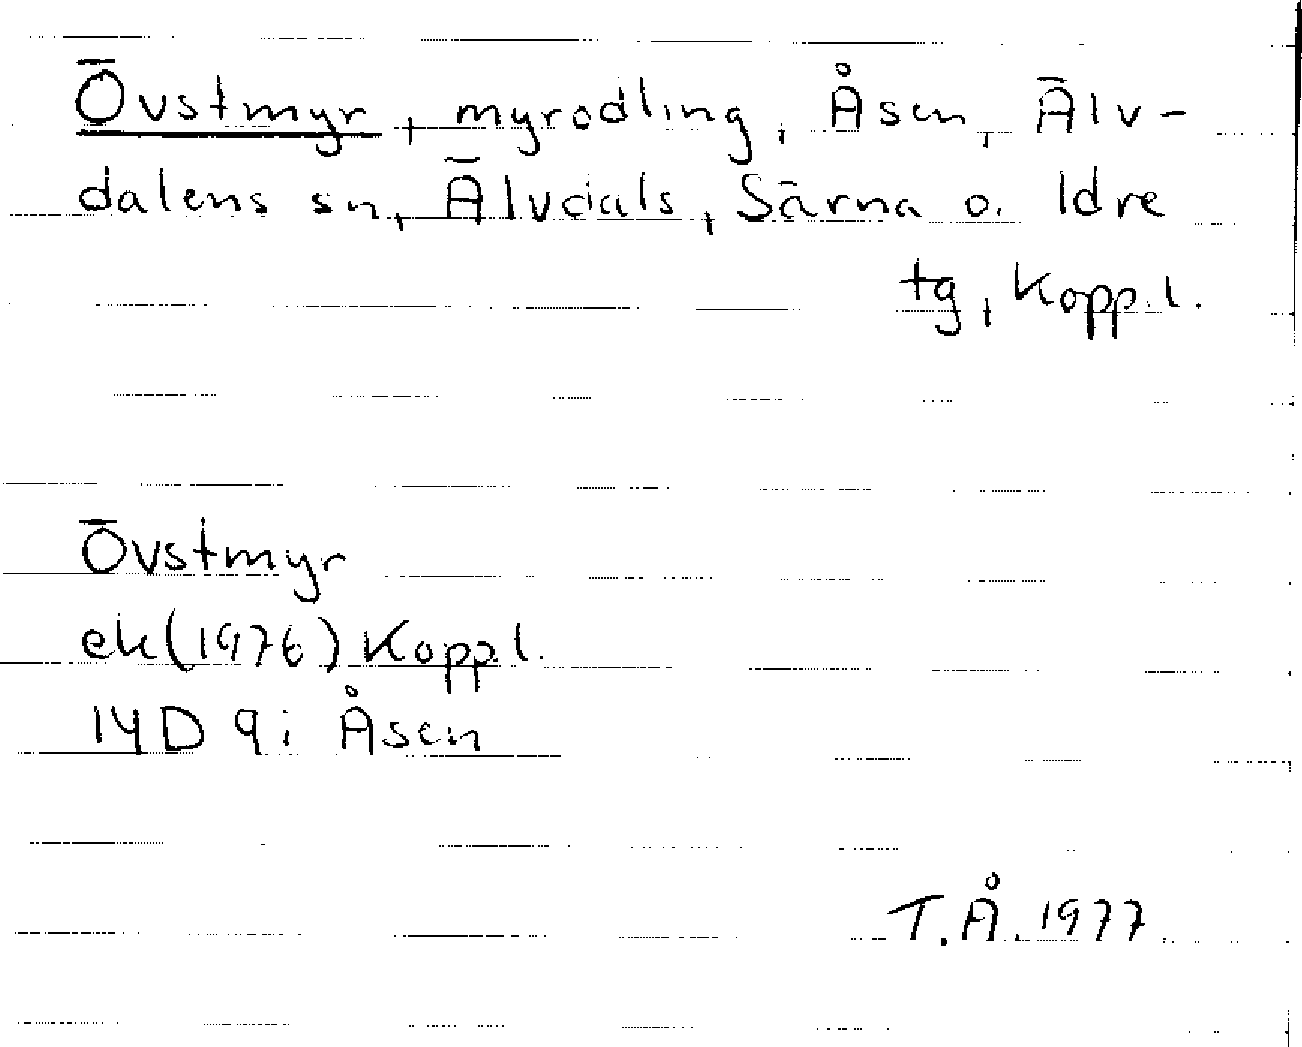 Övstmyr, myrodling, Åsen, Älv-
dalens sn, Älvdals, Särna o. Idre
tg, Kopp.l.
Övstmyr
ek(1976) Kopp.l.
14D 9i Åsen
T.Å. 1977